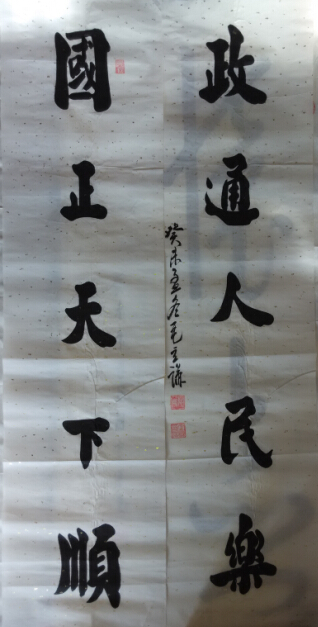 政通人民樂
國正天下順
癸未孟冬毛